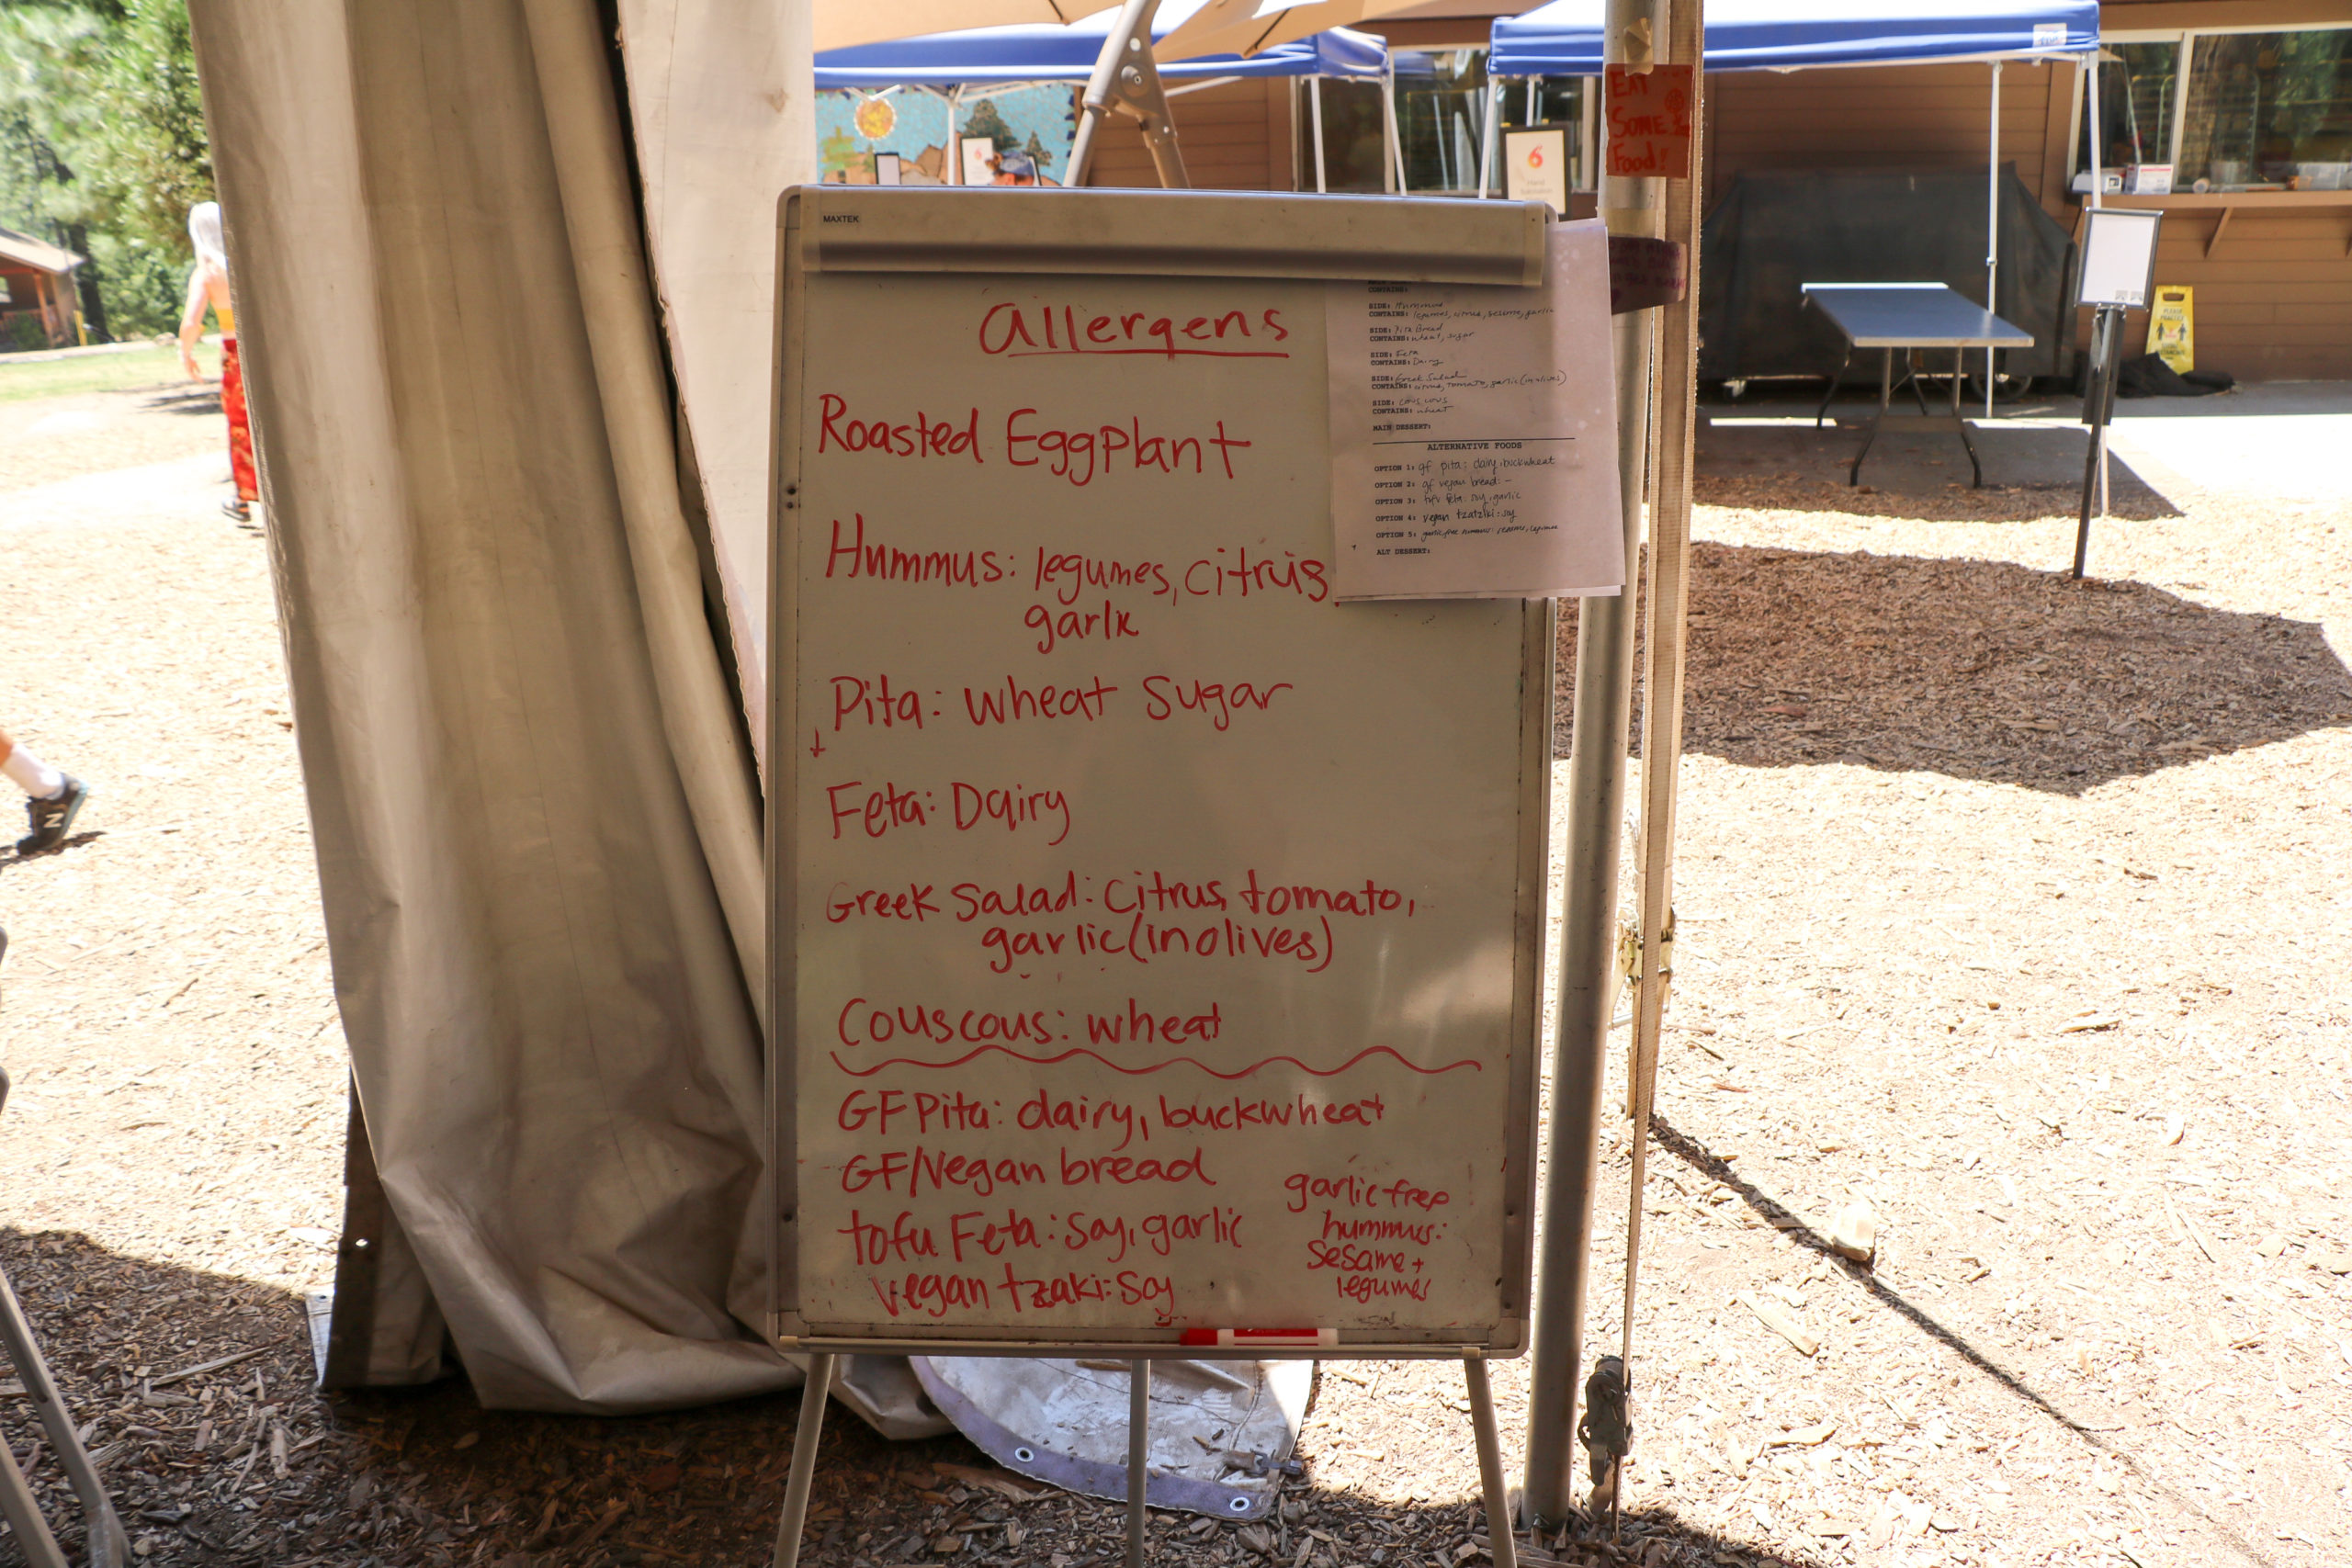 MAXTEK
Allergens
Roasted Eggplant
Hummus: legumes, citrus,
garlic
Pita: wheat sugar
Feta: Dairy
Greek Salad: citrus, tomato,
garlic (in olives)
Couscous: wheat
GF Pita: dairy, buckwheat
GF/Vegan bread
tofu Feta: soy, garlic
vegan tzaki: soy
garlic free
hummus:
sesame +
legumes
CONTAINS:
SIDE: Hummus
CONTAINS: legumes, citrus, sesame, garlic
SIDE: Pita Bread
CONTAINS: wheat, sugar
SIDE: Feta
CONTAINS: Dairy
SIDE: Greek Salad
CONTAINS: citrus, tomato, garlic (in olives)
SIDE: cous cous
CONTAINS: wheat
MAIN DESSERT:
ALTERNATIVE FOODS
OPTION 1: gf pita: dairy, buckwheat
OPTION 2: gf vegan bread: -
OPTION 3: tofu feta: soy, garlic
OPTION 4: vegan tzatziki: soy
OPTION 5: garlic free hummus: sesame, legumes
ALT DESSERT:
EAT
SOME
Food!
6
6
N